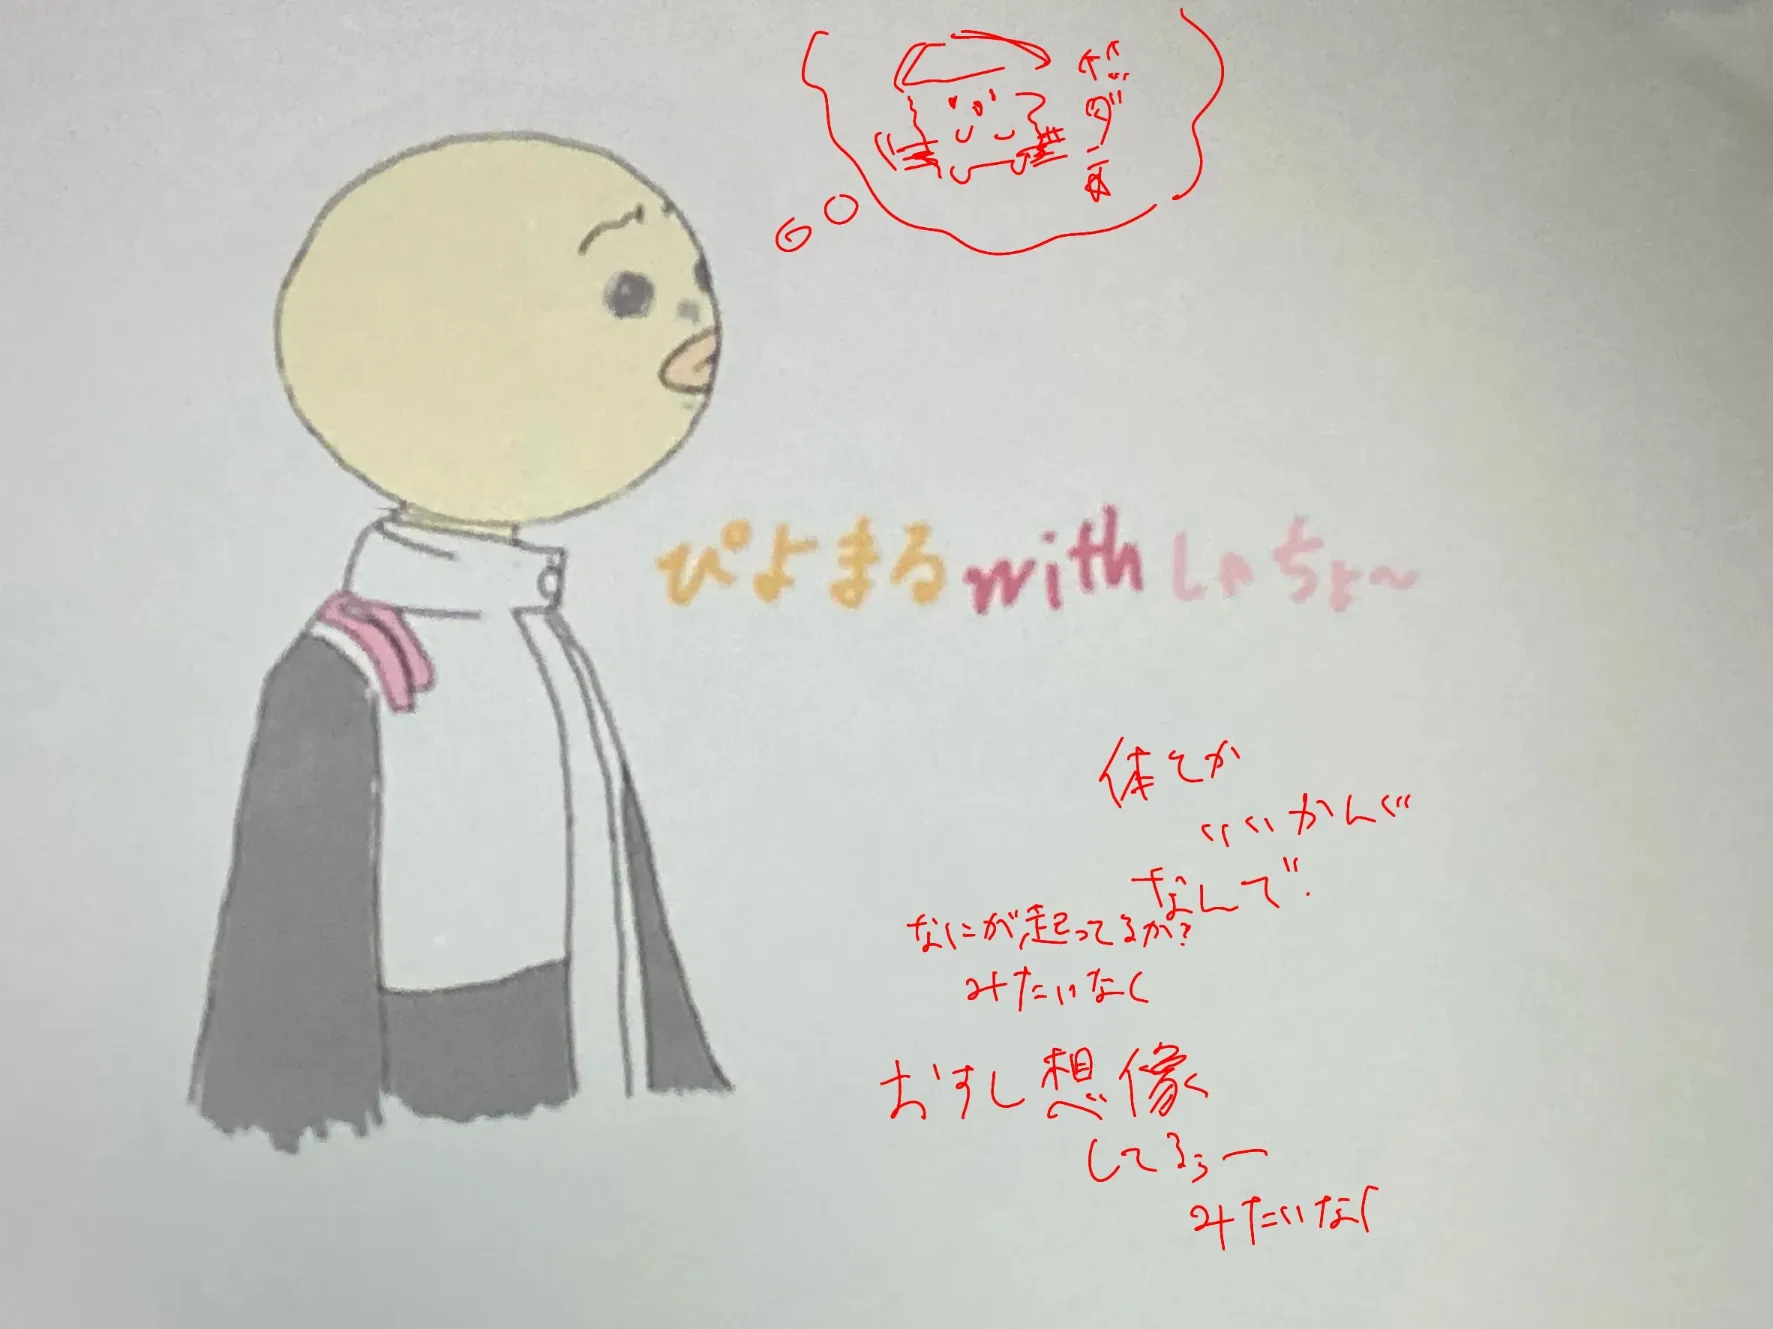 ぴよまるwithしゃちょ〜
体とか
いいかんじ
なんで
なにが起ってるか?
みたいなく
おすし想像
してるぅー
みたいなく